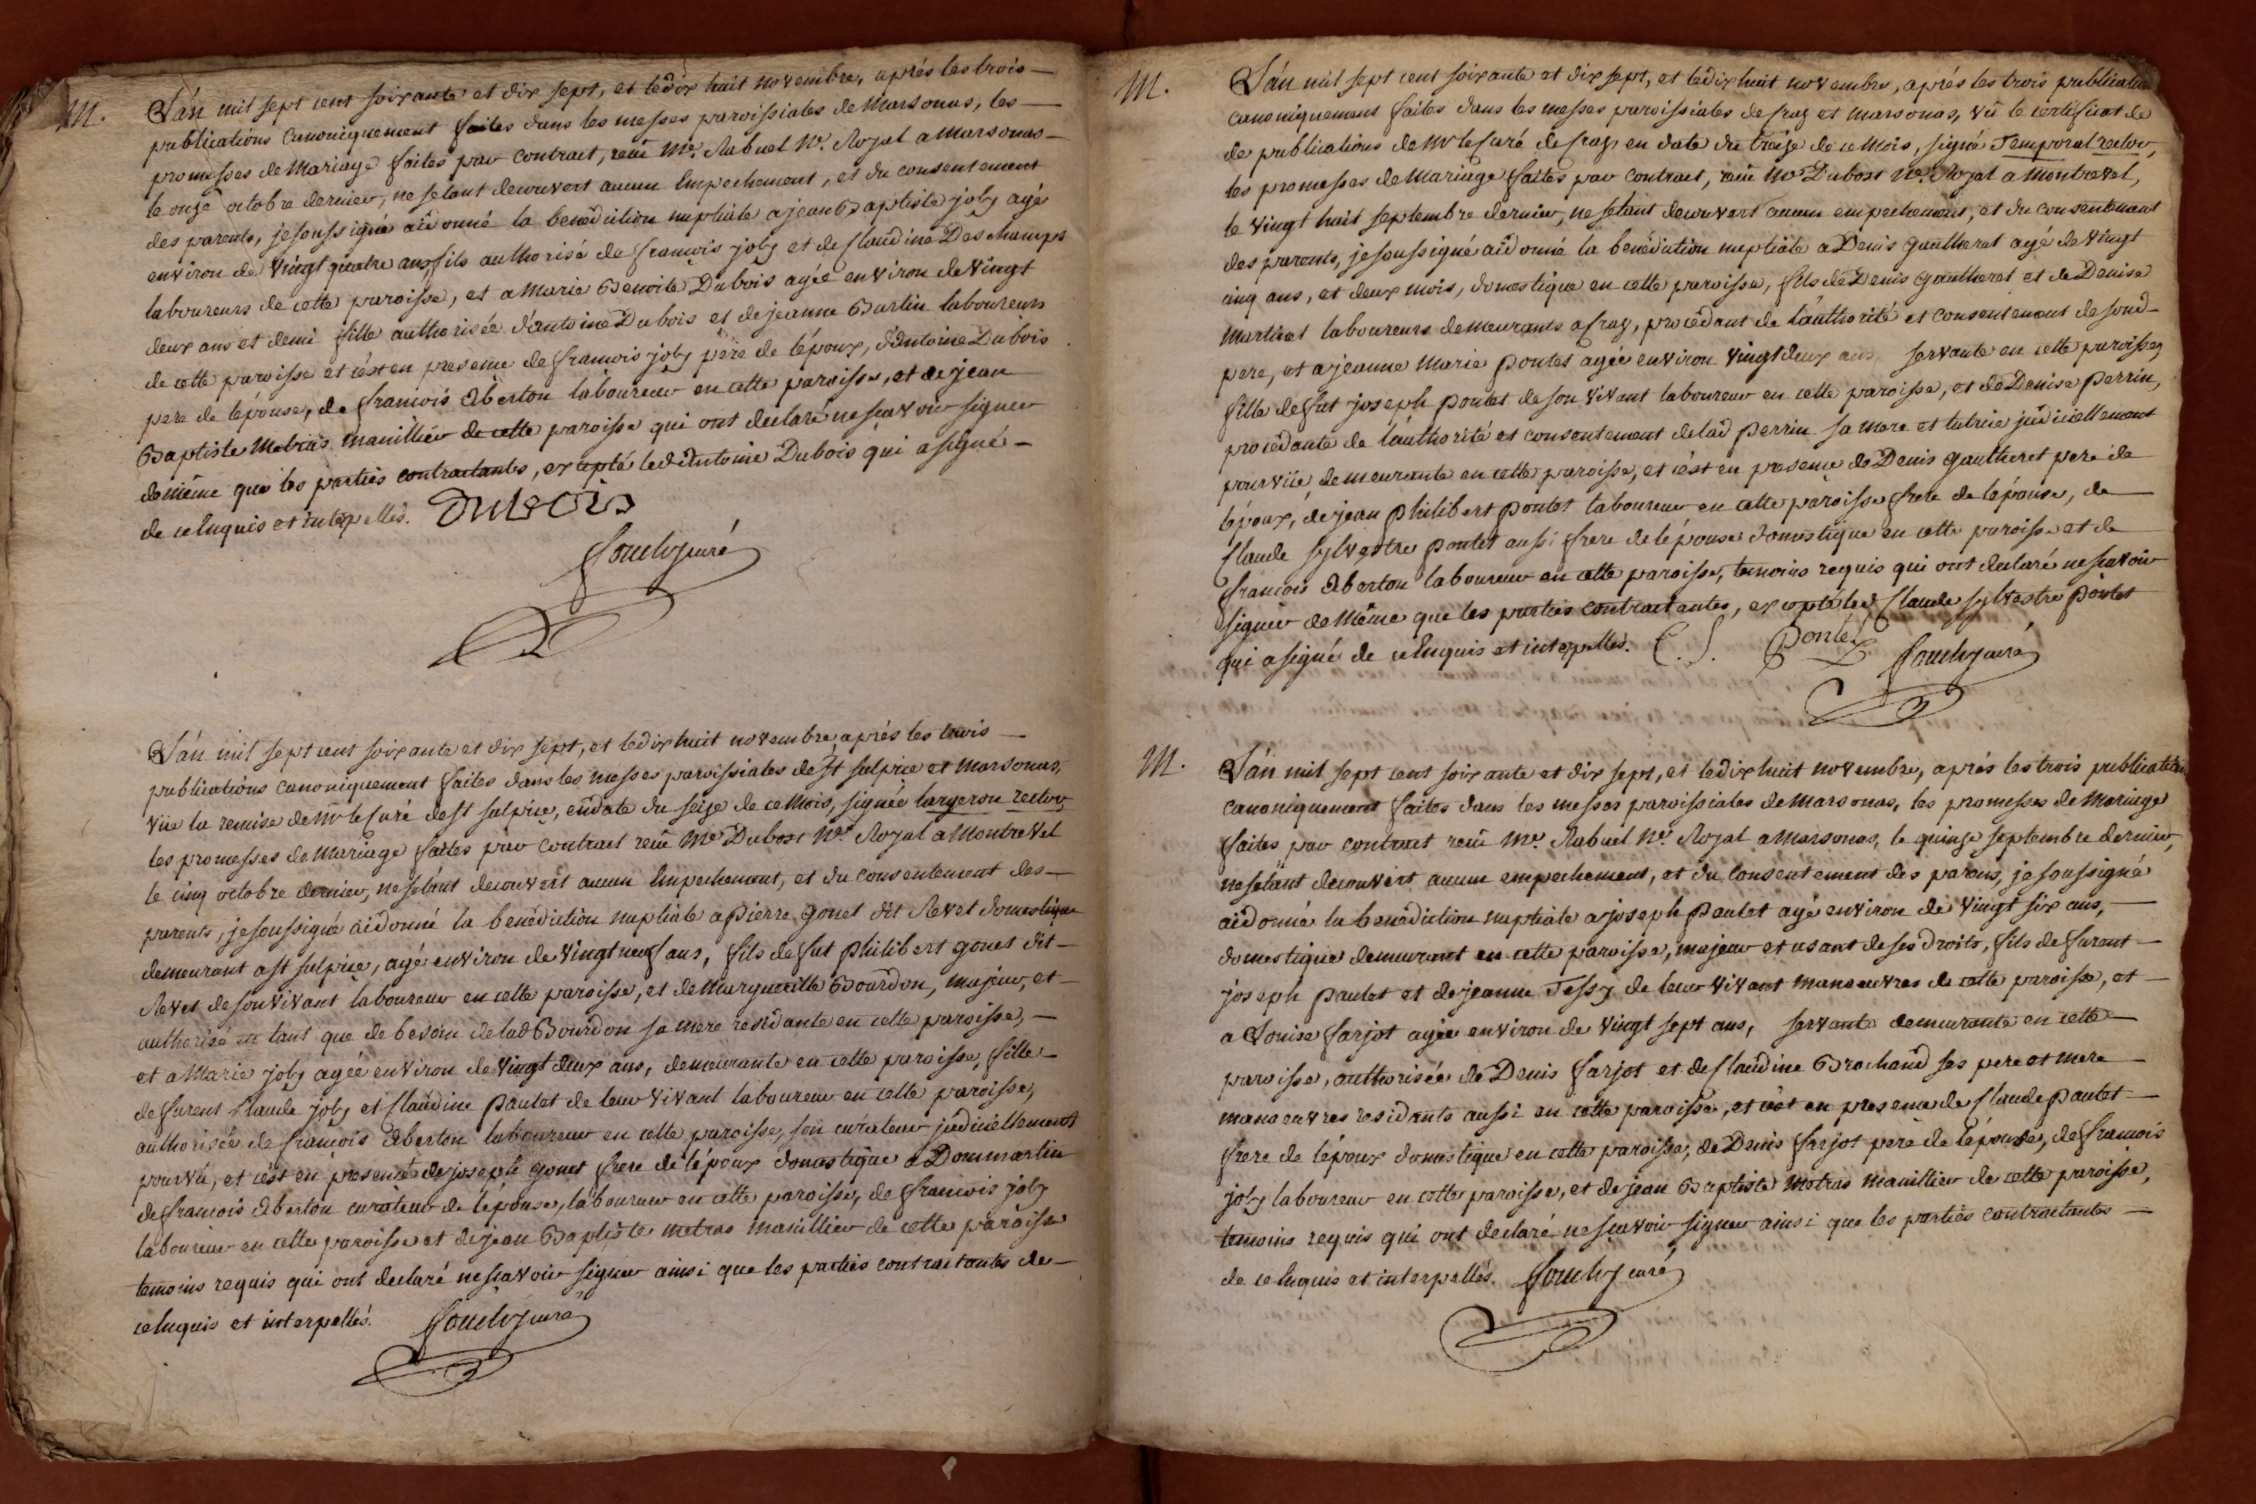 M. L'án mil sept cent soixante et dix sept, et le dix huit novembre, aprés les trois
publications canoniquement faites dans les messes paroissiales de Marsonas, les
promesses de Mariage faites par contract, reçû Me. Rabuel Nre. Royal a Marsonas
le onze octobre dernier, ne setant decouvert aucun Empechement, et du consentement
des parents, je soussigné ai donné la benédiction nuptiale a jean Baptiste joly agé
environ de vingt quatre ans, fils authorisé de francois joly et de Claudine Deschamps
laboureurs de cette paroisse, et a Marie Benoite Dubois agée environ de vingt
deux ans et demi fille authorisée d'antoine Dubois et de jeanne Burtin laboureurs
de cette paroisse et c'est en presence de francois joly père de l'époux, d'Antoine Dubois
pere de l'épouse, de francois Eberton laboureur en cette paroisse, et de jean
Baptiste Metras manillier de cette paroisse qui ont declaré ne scavoir signer
de même que les parties contractantes, excepté led. Antoine Dubois qui a signé
de ce Enquis et interpellés. Dubois
Curé
L'án mil sept cent soixante et dix sept, et le dix huit novembre, aprés les trois
publications canoniquement faites dans les messes paroissiales de St sulpice et Marsonas,
vüe la remise de Mr le Curé de St sulpice, en date du seize de ce Mois, signée largeron rector
les promesses de Mariage faites par contract reçû Me Dubost Nre Royal a Montrevel
le cinq octobre dernier, ne setánt decouvert aucun Empechement, et du consentement des
parents, je soussigné ai donné la benédiction nuptiale a Pierre gonet dit Revet domestique
demeurant a St sulpice, agé environ de vingt neuf ans, fils de fut Philibert gonet dit
Revet de son vivant laboureur en cette paroisse, et de Marguerite Bourdon, majeur, et
authorisé en tant que de besoin de lad Bourdon sa mere residante en cette paroisse,
et a Marie joly agée environ de vingt deux ans, demeurante en cette paroisse, fille
de furent Claude joly et Claudine Pautet de leur vivant laboureur en cette paroisse,
authorisée de francois Eberton laboureur en cette paroisse, son curateur judiciellement
pourvû, et c'est en presence de joseph gonet frere de l'époux domestique a Dommartin
de francois Eberton curateur de l'épouse, laboureur en cette paroisse, de francois joly
laboureur en cette paroisse et de jean Baptiste metras manillier de cette paroisse
temoins requis qui ont declaré ne scavoir signer ainsi que les parties contractantes de
ce Enquis et interpellés. curé
M. L'án mil sept cent soixante et dix sept, et le dix huit novembre, aprés les trois publications
canoniquement faites dans les messes paroissiales de Cras et Marsonas, vû le certificat de
de publications de Mr le Curé de Cras, en date du treize de ce Mois, signé Temporal rector,
les promesses de Mariage faites par contract, reçû Me Dubost Nre. Royal a Montrevel,
le vingt huit septembre dernier, ne setant decouvert aucun empechement, et du consentement
des parents, je soussigné ai donné la benédiction nuptiale a Denis gautheret agé de vingt
cinq ans, et deux mois, domestique en cette paroisse, fils de Denis gautheret et de Denise
Martinet laboureurs demeurants a Cras, procédant de l'authorité et consentement de sond
pere, et a jeanne Marie Pontet agée environ vingt deux ans servante en cette paroisse,
fille de fut joseph Pontet de son vivant laboureur en cette paroisse, et de Denise Perrin,
procédante de l'authorité et consentement de lad Perrin sa mere et tutrice judiciellement
pourvüe, demeurante en cette paroisse, et c'est en presence de Denis gautheret pere de
l'époux, de jean Philibert Pontet laboureur en cette paroisse frere de l'épouse, de
Claude Sylvestre Pontet aussi frere de l'épouse domestique en cette paroisse et de
francois Eberton laboureur en cette paroisse, temoins requis qui ont declaré ne scavoir
signer de même que les parties contractantes, excepté led Claude Sylvestre Pontet
qui a signé de ce Enquis et interpellés. C. S. Pontet curé
M. L'án mil sept cent soixante et dix sept, et le dix huit novembre, aprés les trois publications
canoniquement faites dans les messes paroissiales de Marsonas, les promesses de Mariage
faites par contract reçû Me. Rabuel Nre. Royal a Marsonas, le quinze septembre dernier,
ne setánt decouvert aucun empechement, et du consentement des parens, je soussigné
ai donné la benédiction nuptiale a joseph Pautet agé environ de vingt six ans,
domestique demeurant en cette paroisse, majeur et usant de ses droits, fils de furent
joseph Pautet et de jeanne Tessy de leur vivant manœuvres de cette paroisse, et
a Louise farjot agée environ de vingt sept ans, servante demeurante en cette
paroisse, authorisée de Denis farjot et de Claudine Brochand ses pere et mere
manœuvres residants aussi en cette paroisse, et c'est en presence de Claude Pautet
frere de l'époux domestique en cette paroisse, de Denis farjot pere de l'épouse, de francois
joly laboureur en cette paroisse, et de jean Baptiste Metras manillier de cette paroisse,
temoins requis qui ont declaré ne scavoir signer ainsi que les parties contractantes
de ce Enquis et interpellés. curé